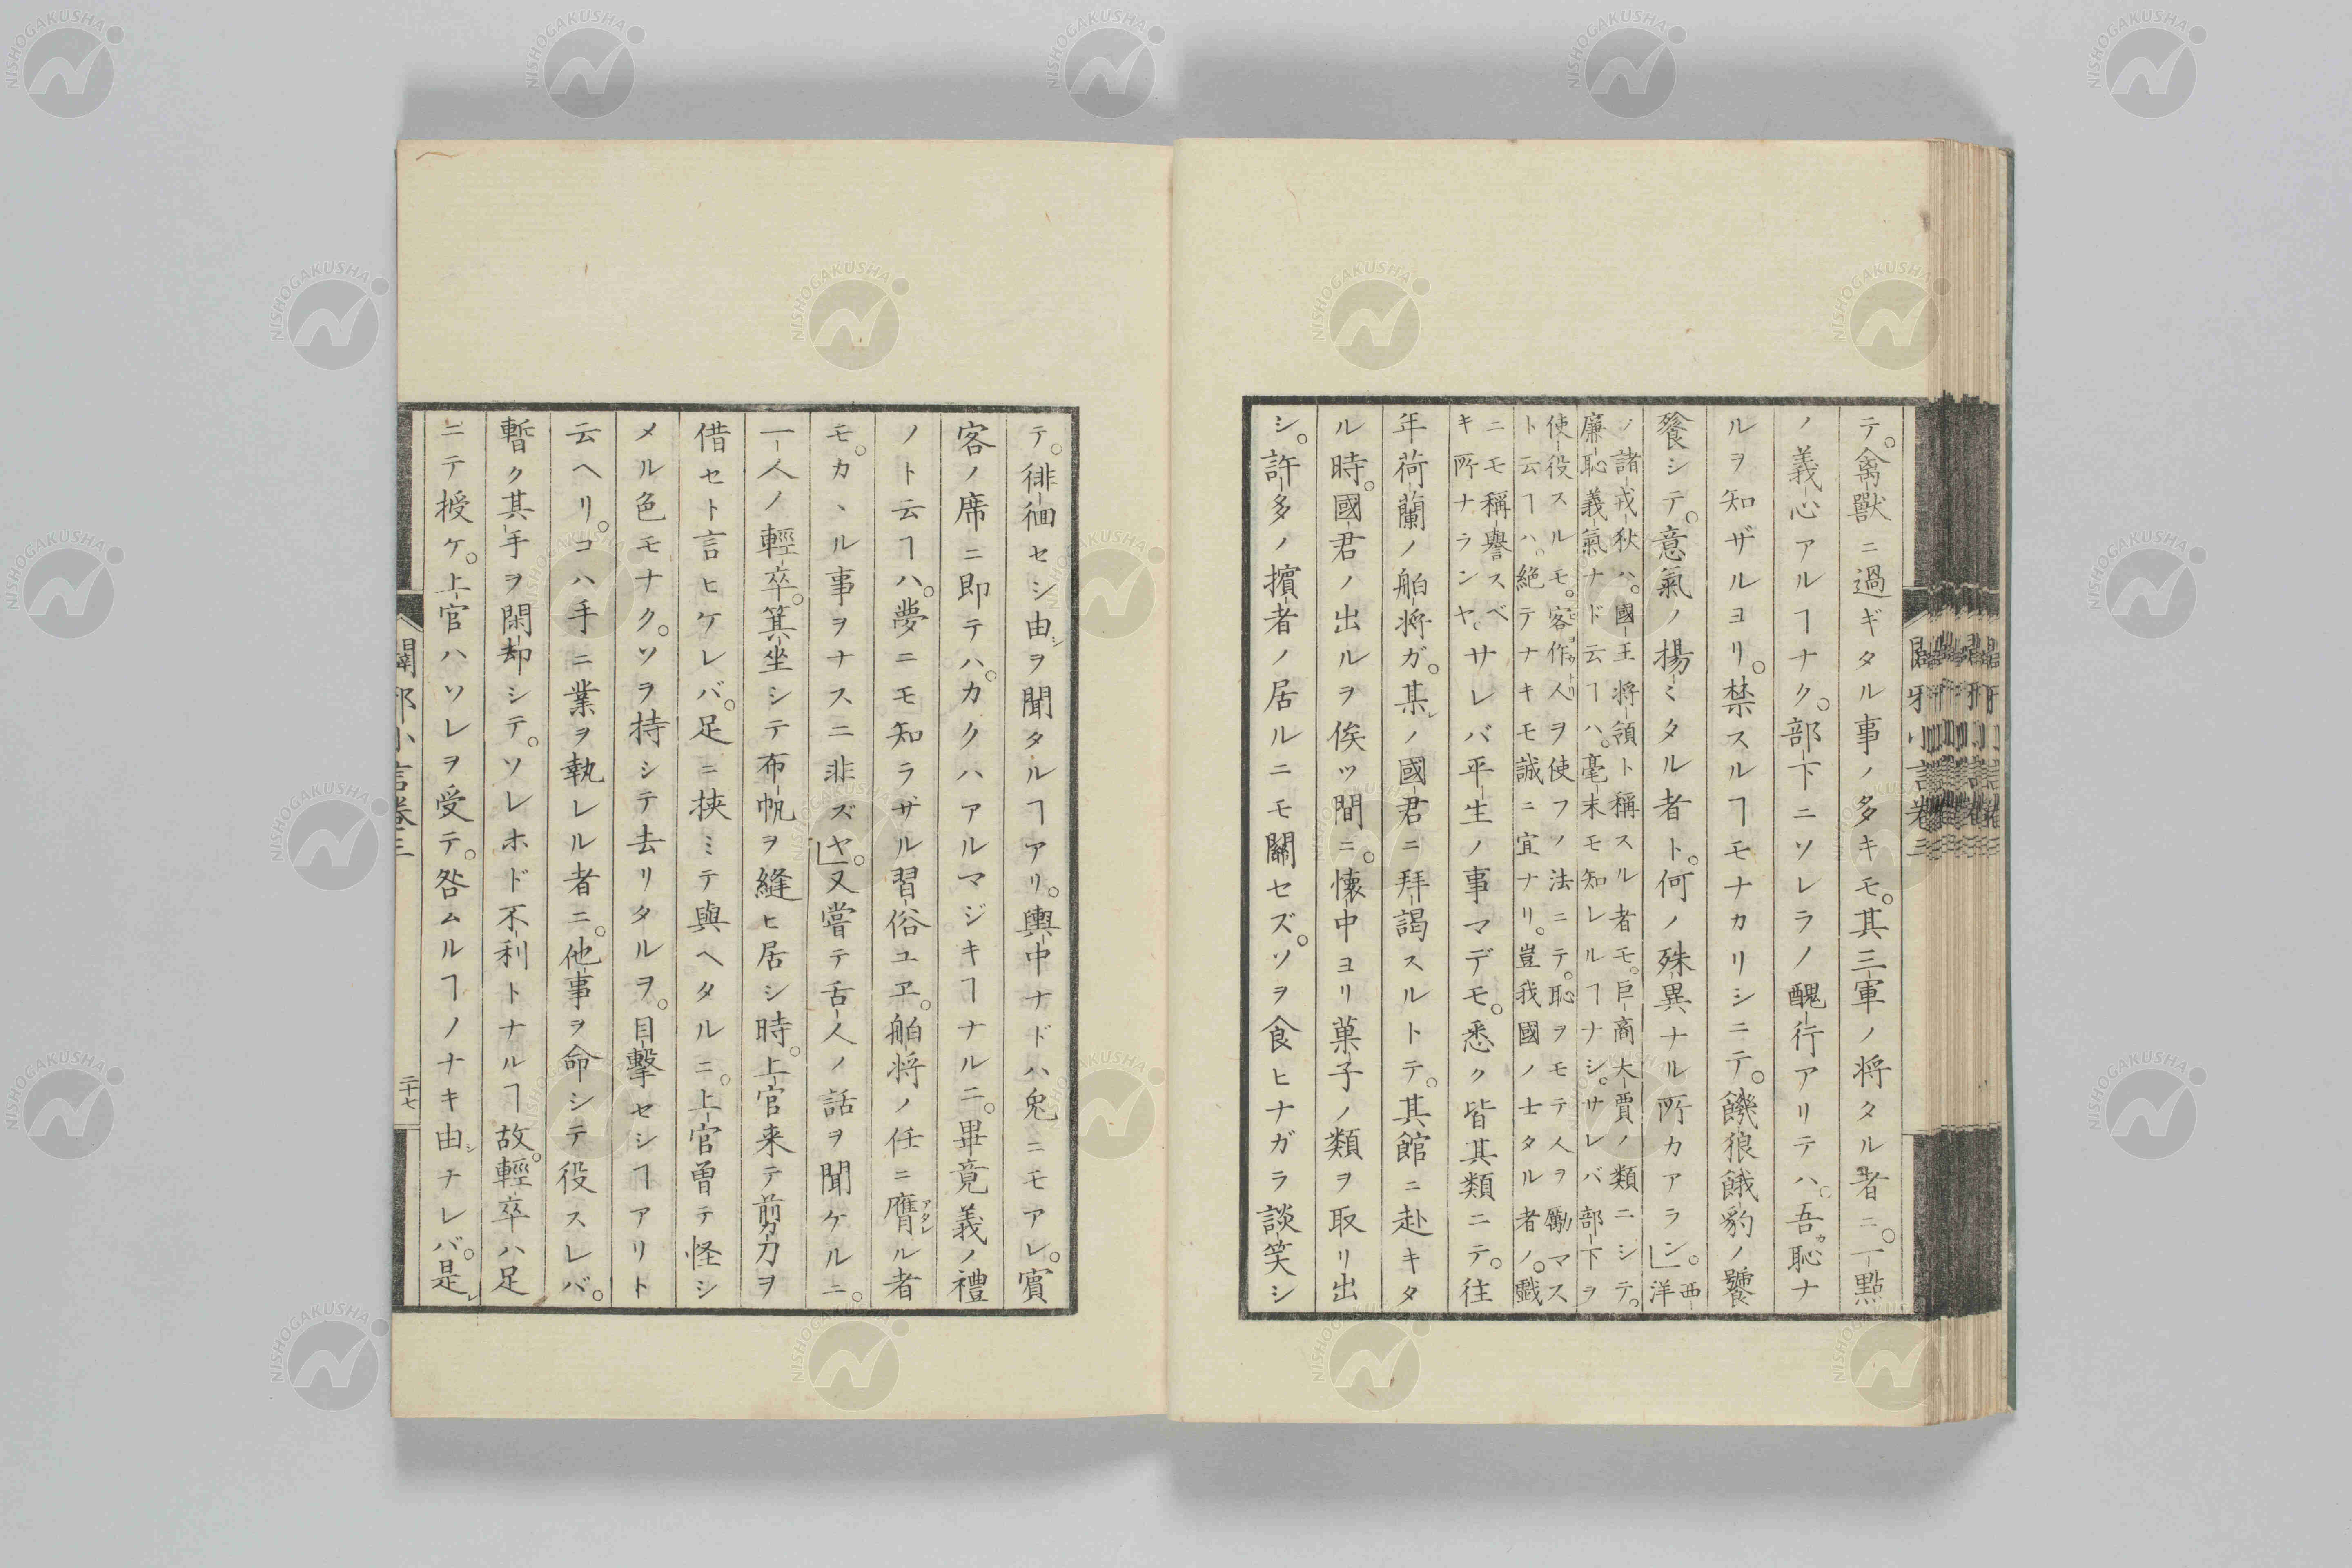 テ。禽獸ニ過ギタル事ノ多キモ。其三軍ノ将タル者ニ。一點
ノ義心アルヿナク。部下ニソレラノ醜行アリテハ。吾カ恥ナ
ルヲ知ザルヨリ。禁スルヿモナカリシニテ。饑狼餓豹ノ饕
餮シテ。意氣ノ揚ミタル者ト。何ノ殊異ナル所カアラン」。西洋
ノ諸戎狄ハ。國王将領ト稱スル者モ。巨商大賈ノ類ニシテ。
廉恥義氣ナド云ヿハ。毫末モ知レルヿナシ。サレバ部下ヲ
使役スルモ。客作人ヲ使フノ法ニテ。恥ヲモテ人ヲ勵マス
ト云ヿハ。絶テナキモ誠ニ宜ナリ。豈我國ノ士タル者ノ。戲
ニモ稱譽スベ
キ所ナランヤ。サレバ平生ノ事マデモ。悉ク皆其類ニテ。往
年荷蘭ノ舶将ガ。某ノ國君ニ拜謁スルトテ。其館ニ赴キタ
ル時。國君ノ出ルヲ俟ツ間ニ。懐中ヨリ菓子ノ類ヲ取リ出
シ。許多ノ擯者ノ居ルニモ關セズ。ソヲ食ヒナガラ談笑シ
テ。徘徊セシ由ヲ聞タルヿアリ。輿中ナドハ兎ニモアレ。賓
客ノ席ニ即テハ。カクハアルマジキヿナルニ。畢竟義ノ禮
ノト云ヿハ。夢ニモ知ラザル習俗ユヱ。舶将ノ任ニ膺アタレル者
モ。カヽル事ヲナスニ非ズヤ」。又嘗テ舌人ノ話ヲ聞ケルニ。
一人ノ輕卒。箕坐シテ布帆ヲ縫ヒ居シ時。上官来テ剪刀ヲ
借セト言ヒケレバ。足ニ挟ミテ與ヘタルニ。上官曽テ怪シ
メル色モナク。ソヲ持シテ去リタルヲ。目擊セシヿアリト
云ヘリ。コハ手ニ業ヲ執レル者ニ。他事ヲ命シテ役スレバ。
暫ク其手ヲ閑却シテ。ソレホド不利トナルヿ故。輕卒ハ足
ニテ授ケ。上官ハソレヲ受テ。咎ムルヿノナキ由ナレバ。是
闢邪小言卷三
二十七